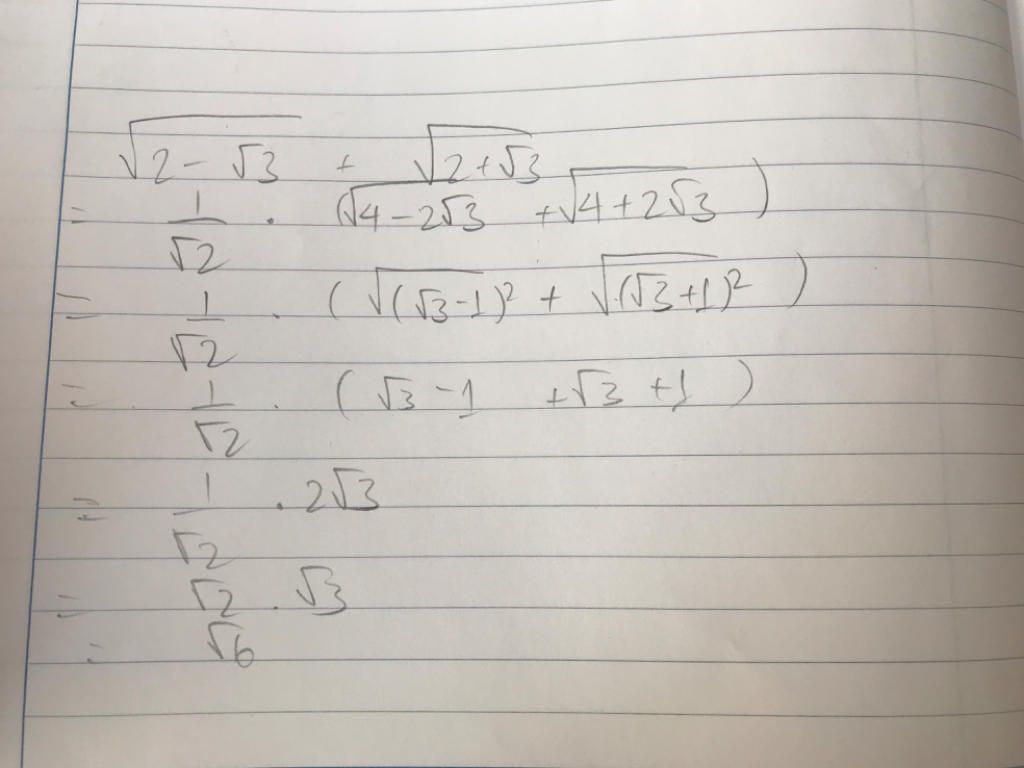 √(2 - √3) + √(2 + √3)
= 1/√2 . (√(4 - 2√3) + √(4 + 2√3))
= 1/√2 . (√((√3 - 1)²) + √((√3 + 1)²))
= 1/√2 . (√3 - 1 + √3 + 1)
= 1/√2 . 2√3
= √2 . √3
= √6